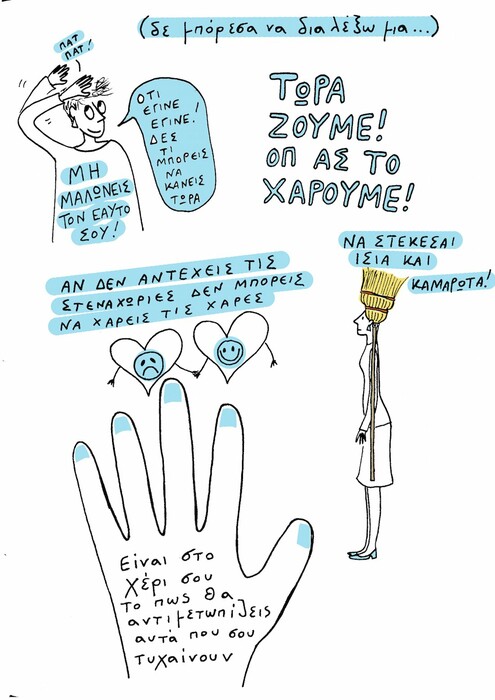 (δε μπόρεσα να διαλέξω μια...)
ΠΑΤ
ΠΑΤ!
ΟΤΙ
ΕΓΙΝΕ
ΕΓΙΝΕ!
ΔΕΣ
ΤΙ
ΜΠΟΡΕΙΣ
ΝΑ
ΚΑΝΕΙΣ
ΤΩΡΑ
ΜΗ
ΜΑΛΩΝΕΙΣ
ΤΟΝ ΕΑΥΤΟ
ΣΟΥ!
ΤΩΡΑ
ΖΟΥΜΕ!
ΟΠ ΑΣ ΤΟ
ΧΑΡΟΥΜΕ!
ΑΝ ΔΕΝ ΑΝΤΕΧΕΙΣ ΤΙΣ
ΣΤΕΝΑΧΩΡΙΕΣ ΔΕΝ ΜΠΟΡΕΙΣ
ΝΑ ΧΑΡΕΙΣ ΤΙΣ ΧΑΡΕΣ
ΝΑ ΣΤΕΚΕΣΑΙ
ΙΣΙΑ ΚΑΙ
ΚΑΜΑΡΩΤΑ!
Είναι στο
χέρι σου
το πως θα
αντιμετωπίζεις
αυτά που σου
τυχαίνουν